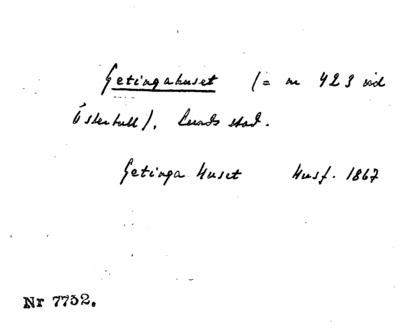 Getingahuset (= nr 423 vid
Östertull), Lunds stad.
Getinga Huset Husf. 1867
Nr 7732.